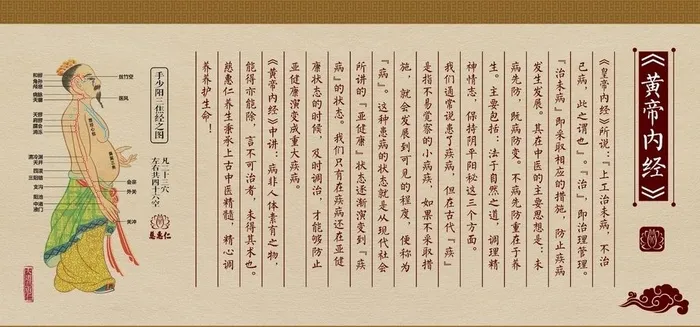 《黄帝内经》
《皇帝内经》所说:『上工治未病,不治
已病,此之谓也。』『治』,即治理管理。
『治未病』即采取相应的措施,防止疾病
发生发展。其在中医的主要思想是:未
病先防,既病防变。不病先防重在于养
生。主要包括:法于自然之道,调理精
神情志,保持阴平阳秘这三个方面。
我们通常说患了疾病,但在古代『疾』
是指不易觉察的小疾病,如果不采取措
施,就会发展到可见的程度,便称为
『病』。这种患病的状态就是从现代社会
所讲的『亚健康』状态逐渐演变到『疾
病』的状态。我们只有在疾病还在亚健
康状态的时候,及时调治,才能够防止
亚健康演变成重大疾病。
《黄帝内经》中讲:病非人体素有之物,
能得亦能除,言不可治者,未得其术也。
慈惠仁养生秉承上古中医精髓,精心调
养养护生命!
手少阳三焦经之图
凡二十三穴
左右共四十六穴
慈惠仁
丝竹空
医风
会宗
外关
关冲
角孙
天井
四渎
三阳络
支沟
阳池
中渚
液门